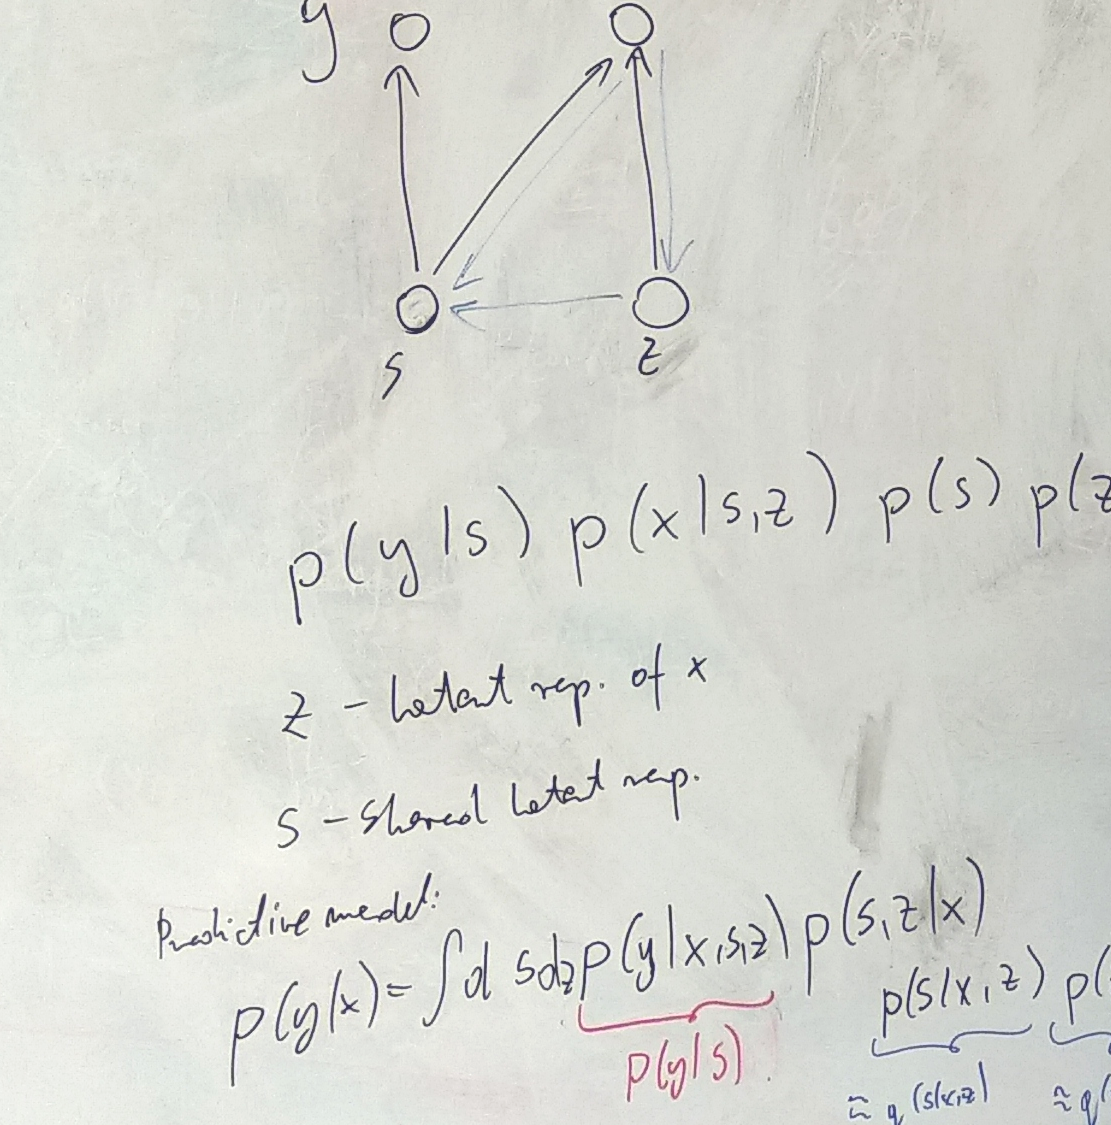 y
s z
p(y|s) p(x|s,z) p(s) p(z
z - Latent rep. of x
s - Shared latent rep.
Predictive model:
p(y|x) = ∫d sdz p(y|x,s,z) p(s,z|x)
p(s|x,z) p(
p(y|s)
≈ q(s|x,z) ≈ q(